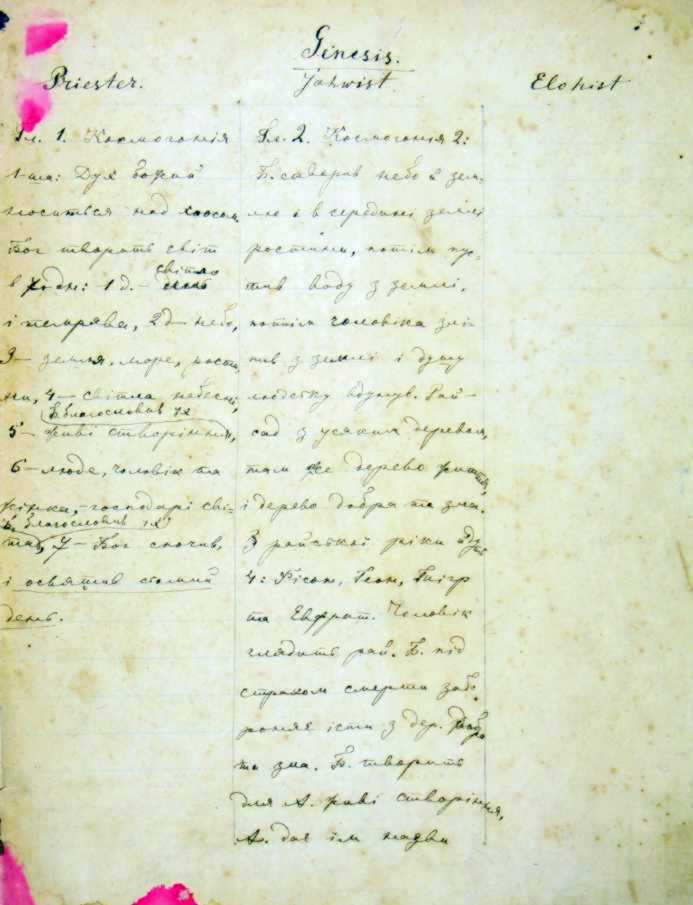 Genesis.
Priester.
Jahwist.
Elohist
Гл. 1. Космогонія
1-ша: Дух божий
носиться над хаосом,
Бог творить світ
в 7 дн: 1 д. – світло
і темрява, 2 д – небо,
3 – земля, море, рости,
ни, 4 – світила небесні,
Б. благословив їх
5 – живі створіння,
6 – люде, чоловік та
жінка, – господарі сві-
Б. благословив їх
та, 7 – Бог спочив,
і освятив сьомий
день.
Гл. 2. Космогонія 2:
Б. створив небо й зем-
лю і в середині землі
ростини, потім пус-
тив воду з землі,
потім чоловіка злі-
пив з землі і душу
людську вдунув. Рай –
сад з усяким деревом,
там же дерево життя,
і дерево добра та зла.
З райської ріки йдуть
4: Фісон, Геон, Тигр
та Евфрат. Чоловік
глядить рай. Б. під
страхом смерти забо-
роняє їсти з дер. добра
та зла. Б. творить
для А. живі створіння,
А. дає їм назви